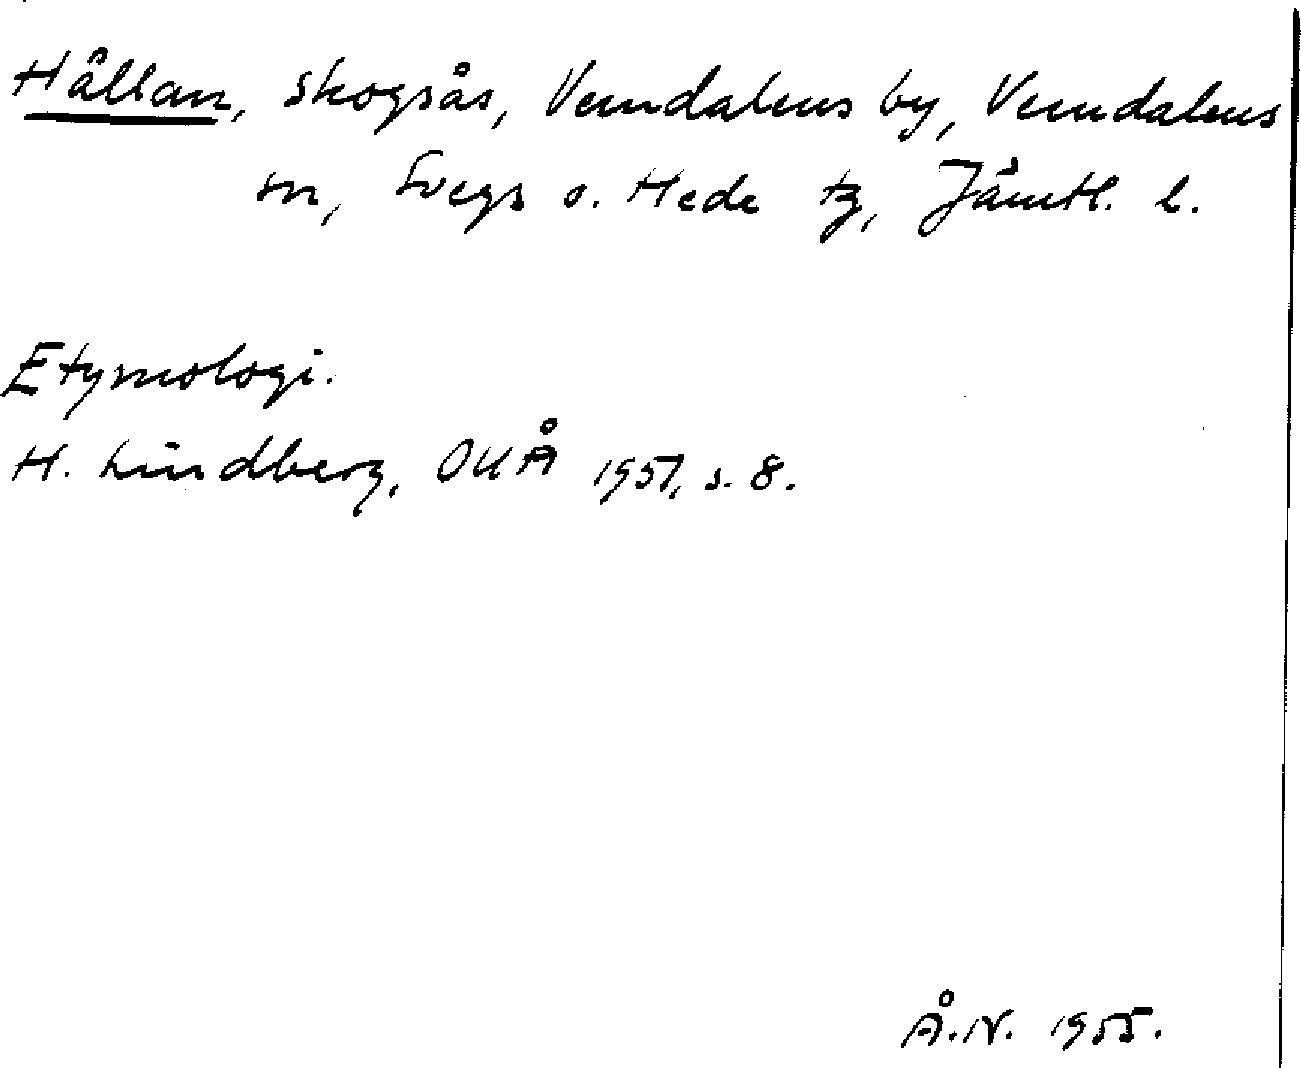 Hållan, skogsås, Vemdalens by, Vemdalens
sn, Svegs o. Hede tg, Jämtl. l.
Etymologi.
H. Lindberg, OUÅ 1951, s. 8.
Å. N. 1955.